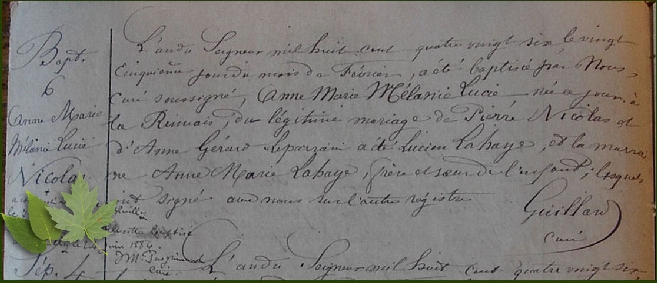 Bapt.
6
Anne Marie
Mélanie Lucie
Nicolas
L'an du Seigneur mil huit cent quatre vingt six, le vingt
cinquième jour du mois de Février, a été baptisée par Nous,
curé soussigné, Anne Marie Mélanie Lucie née ce jour à
la Remuais du légitime mariage de Pierre Nicolas et
d'Anne Gérard Le parrain a été Lucien Lahaye, et la marrai
ne Anne Marie Lahaye, frère et sœur de l'enfant, lesquels
ont signé avec nous sur l'autre registre
Guillard
curé
Sép. 4
L'an du Seigneur mil huit cent quatre vingt six